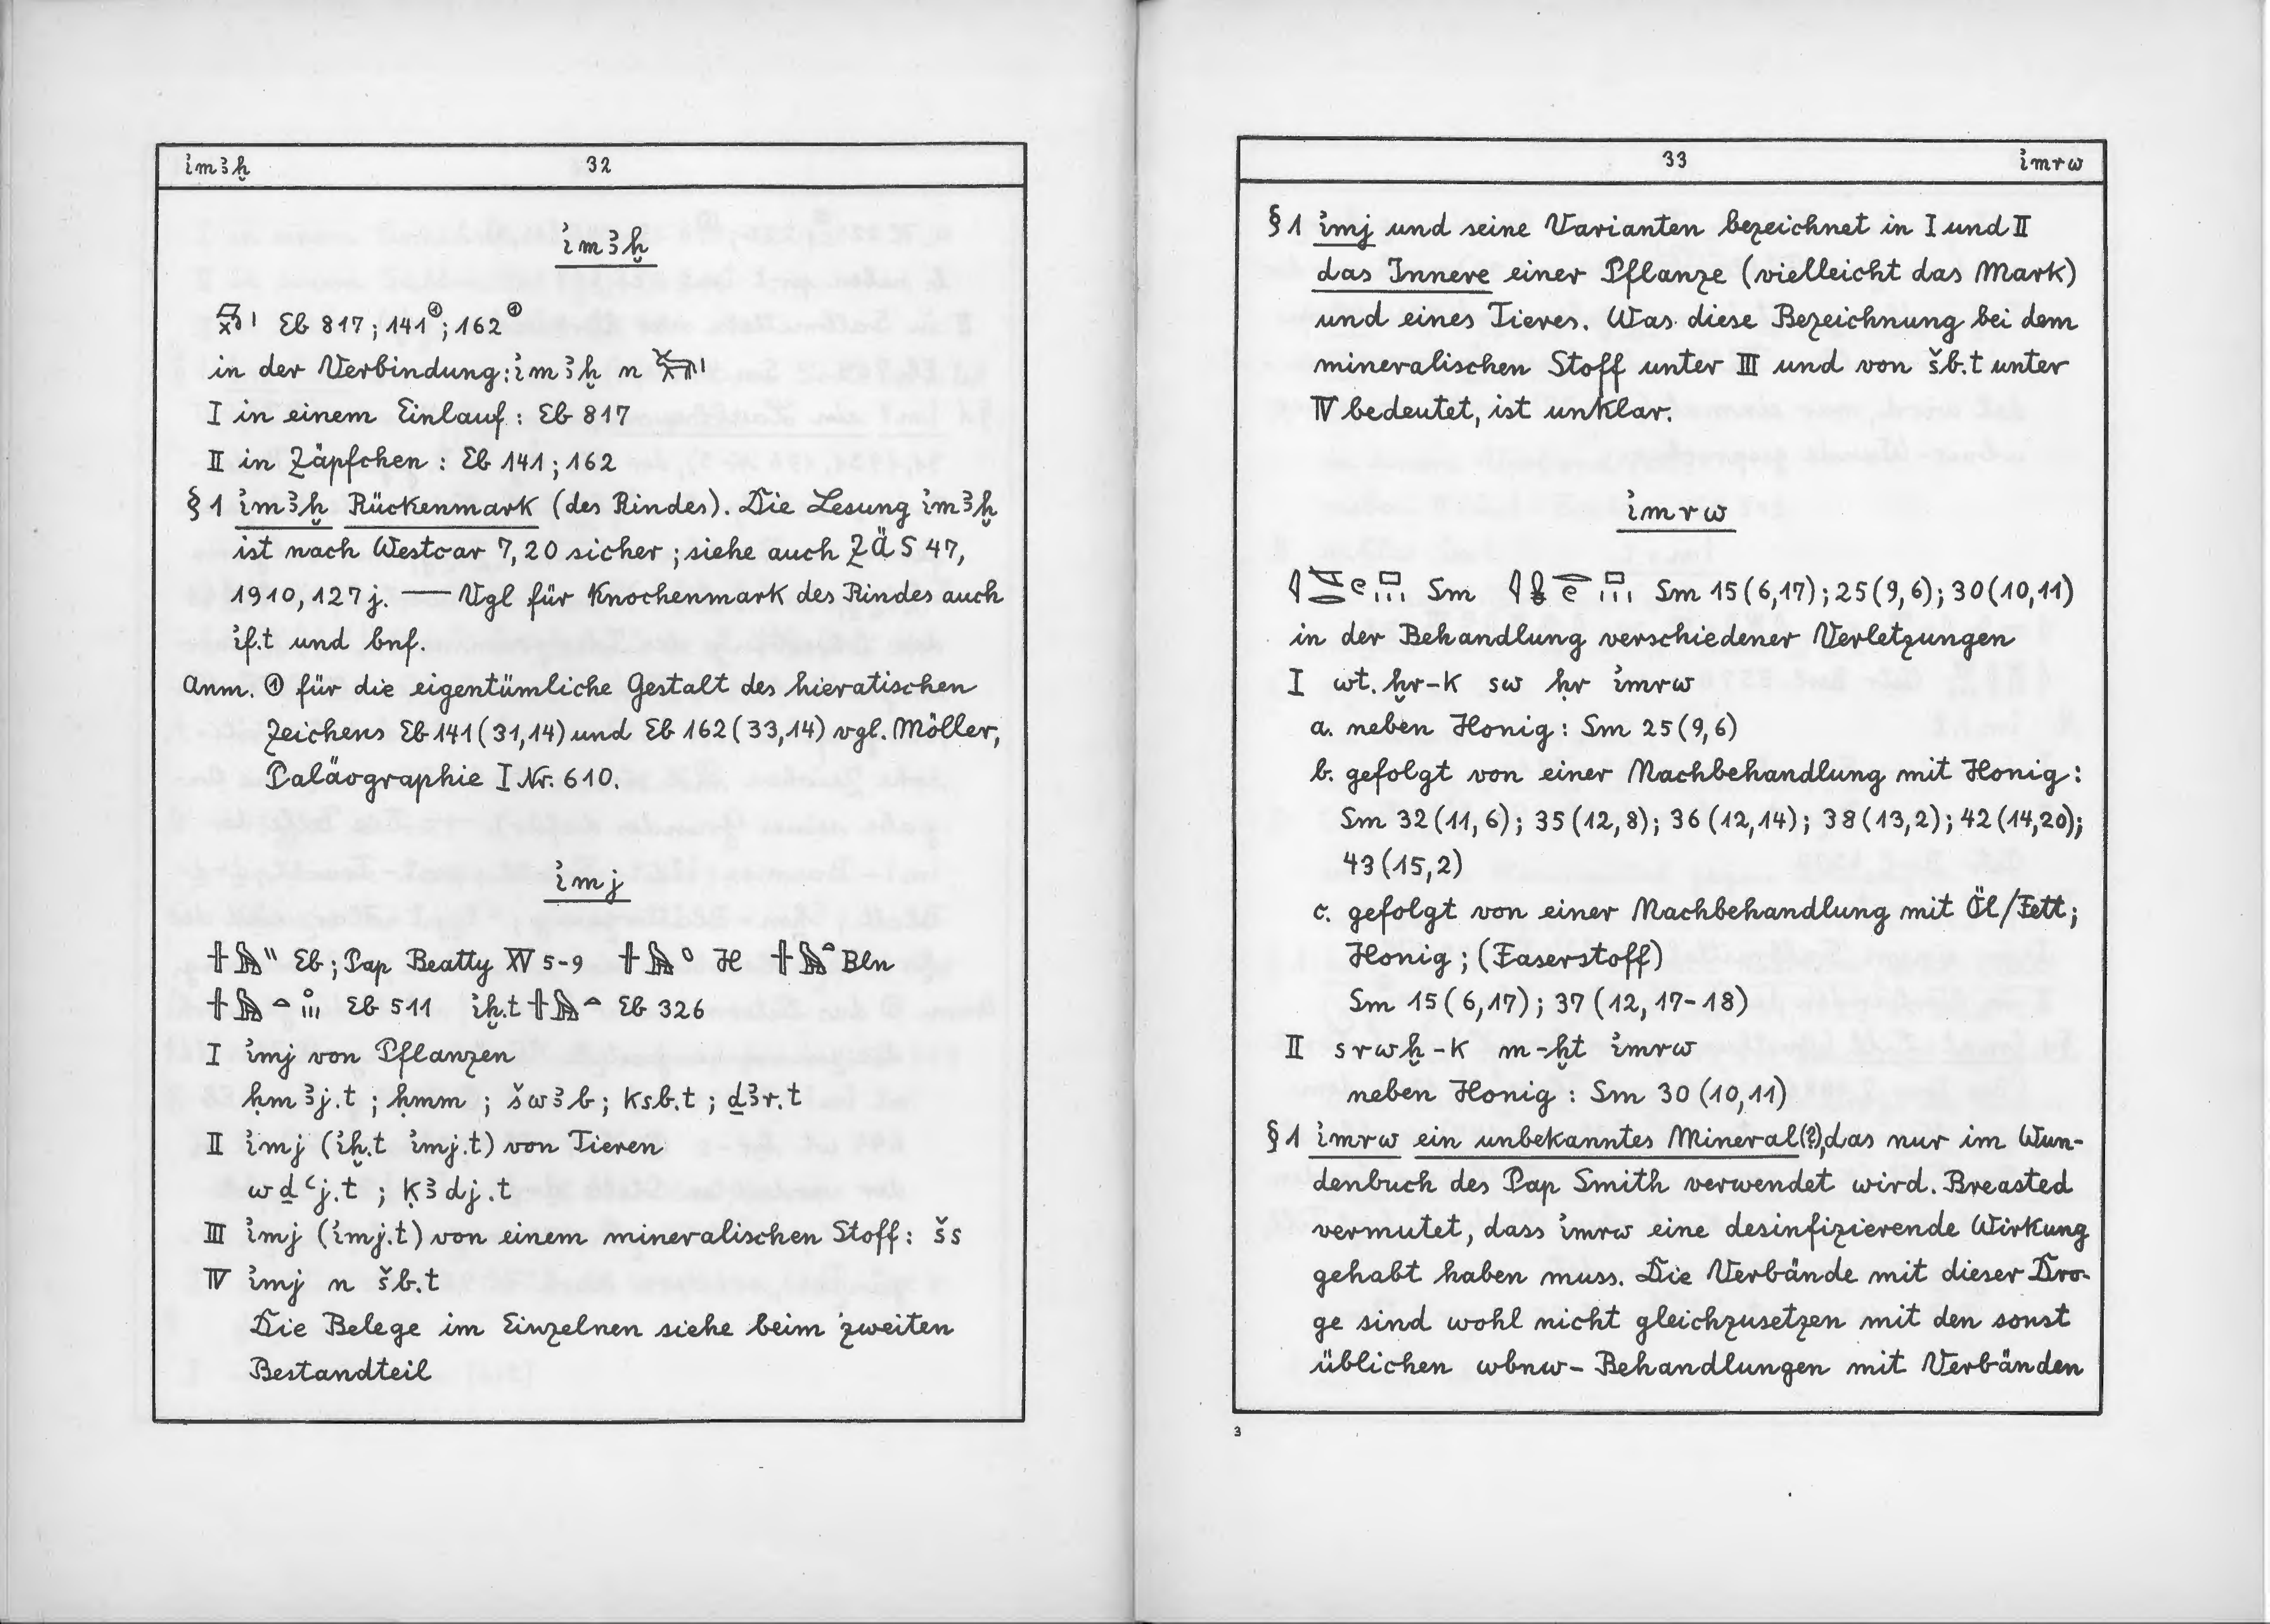 i͗mꜣḫ 32
i͗mꜣḫ
Eb 817; 141①; 162①
in der Verbindung: i͗mꜣḫ n
I in einem Einlauf: Eb 817
II in Zäpfchen: Eb 141; 162
§ 1 i͗mꜣḫ Rückenmark (des Rindes). Die Lesung i͗mꜣḫ
ist nach Westcar 7,20 sicher; siehe auch ZÄS 47,
1910, 127 j. — Vgl für Knochenmark des Rindes auch
i͗f.t und bnf.
Anm. ① für die eigentümliche Gestalt des hieratischen
Zeichens Eb 141 (31,14) und Eb 162 (33,14) vgl. Möller,
Paläographie I Nr. 610.
i͗mj
Eb; Pap Beatty XV 5-9 H Bln
Eb 511 i͗ḫ.t Eb 326
I i͗mj von Pflanzen
ḥmꜣj.t; ḥmm; šwꜣb; ksb.t; ḏꜣr.t
II i͗mj (i͗ḫ.t i͗mj.t) von Tieren
wḏꜥj.t; ḳꜣdj.t
III i͗mj (i͗mj.t) von einem mineralischen Stoff: šs
IV i͗mj n šb.t
Die Belege im Einzelnen siehe beim zweiten
Bestandteil
33 i͗mrw
§ 1 i͗mj und seine Varianten bezeichnet in I und II
das Innere einer Pflanze (vielleicht das Mark)
und eines Tieres. Was diese Bezeichnung bei dem
mineralischen Stoff unter III und von šb.t unter
IV bedeutet, ist unklar.
i͗mrw
Sm Sm 15 (6,17); 25 (9,6); 30 (10,11)
in der Behandlung verschiedener Verletzungen
I wt.ḫr-k sw ḥr i͗mrw
a. neben Honig: Sm 25 (9,6)
b. gefolgt von einer Nachbehandlung mit Honig:
Sm 32 (11,6); 35 (12,8); 36 (12,14); 38 (13,2); 42 (14,20);
43 (15,2)
c. gefolgt von einer Nachbehandlung mit Öl/Fett;
Honig; (Faserstoff)
Sm 15 (6,17); 37 (12,17-18)
II srwḫ-k m-ḫt i͗mrw
neben Honig: Sm 30 (10,11)
§ 1 i͗mrw ein unbekanntes Mineral(?), das nur im Wun-
denbuch des Pap Smith verwendet wird. Breasted
vermutet, dass i͗mrw eine desinfizierende Wirkung
gehabt haben muss. Die Verbände mit dieser Dro-
ge sind wohl nicht gleichzusetzen mit den sonst
üblichen wbnw-Behandlungen mit Verbänden
3